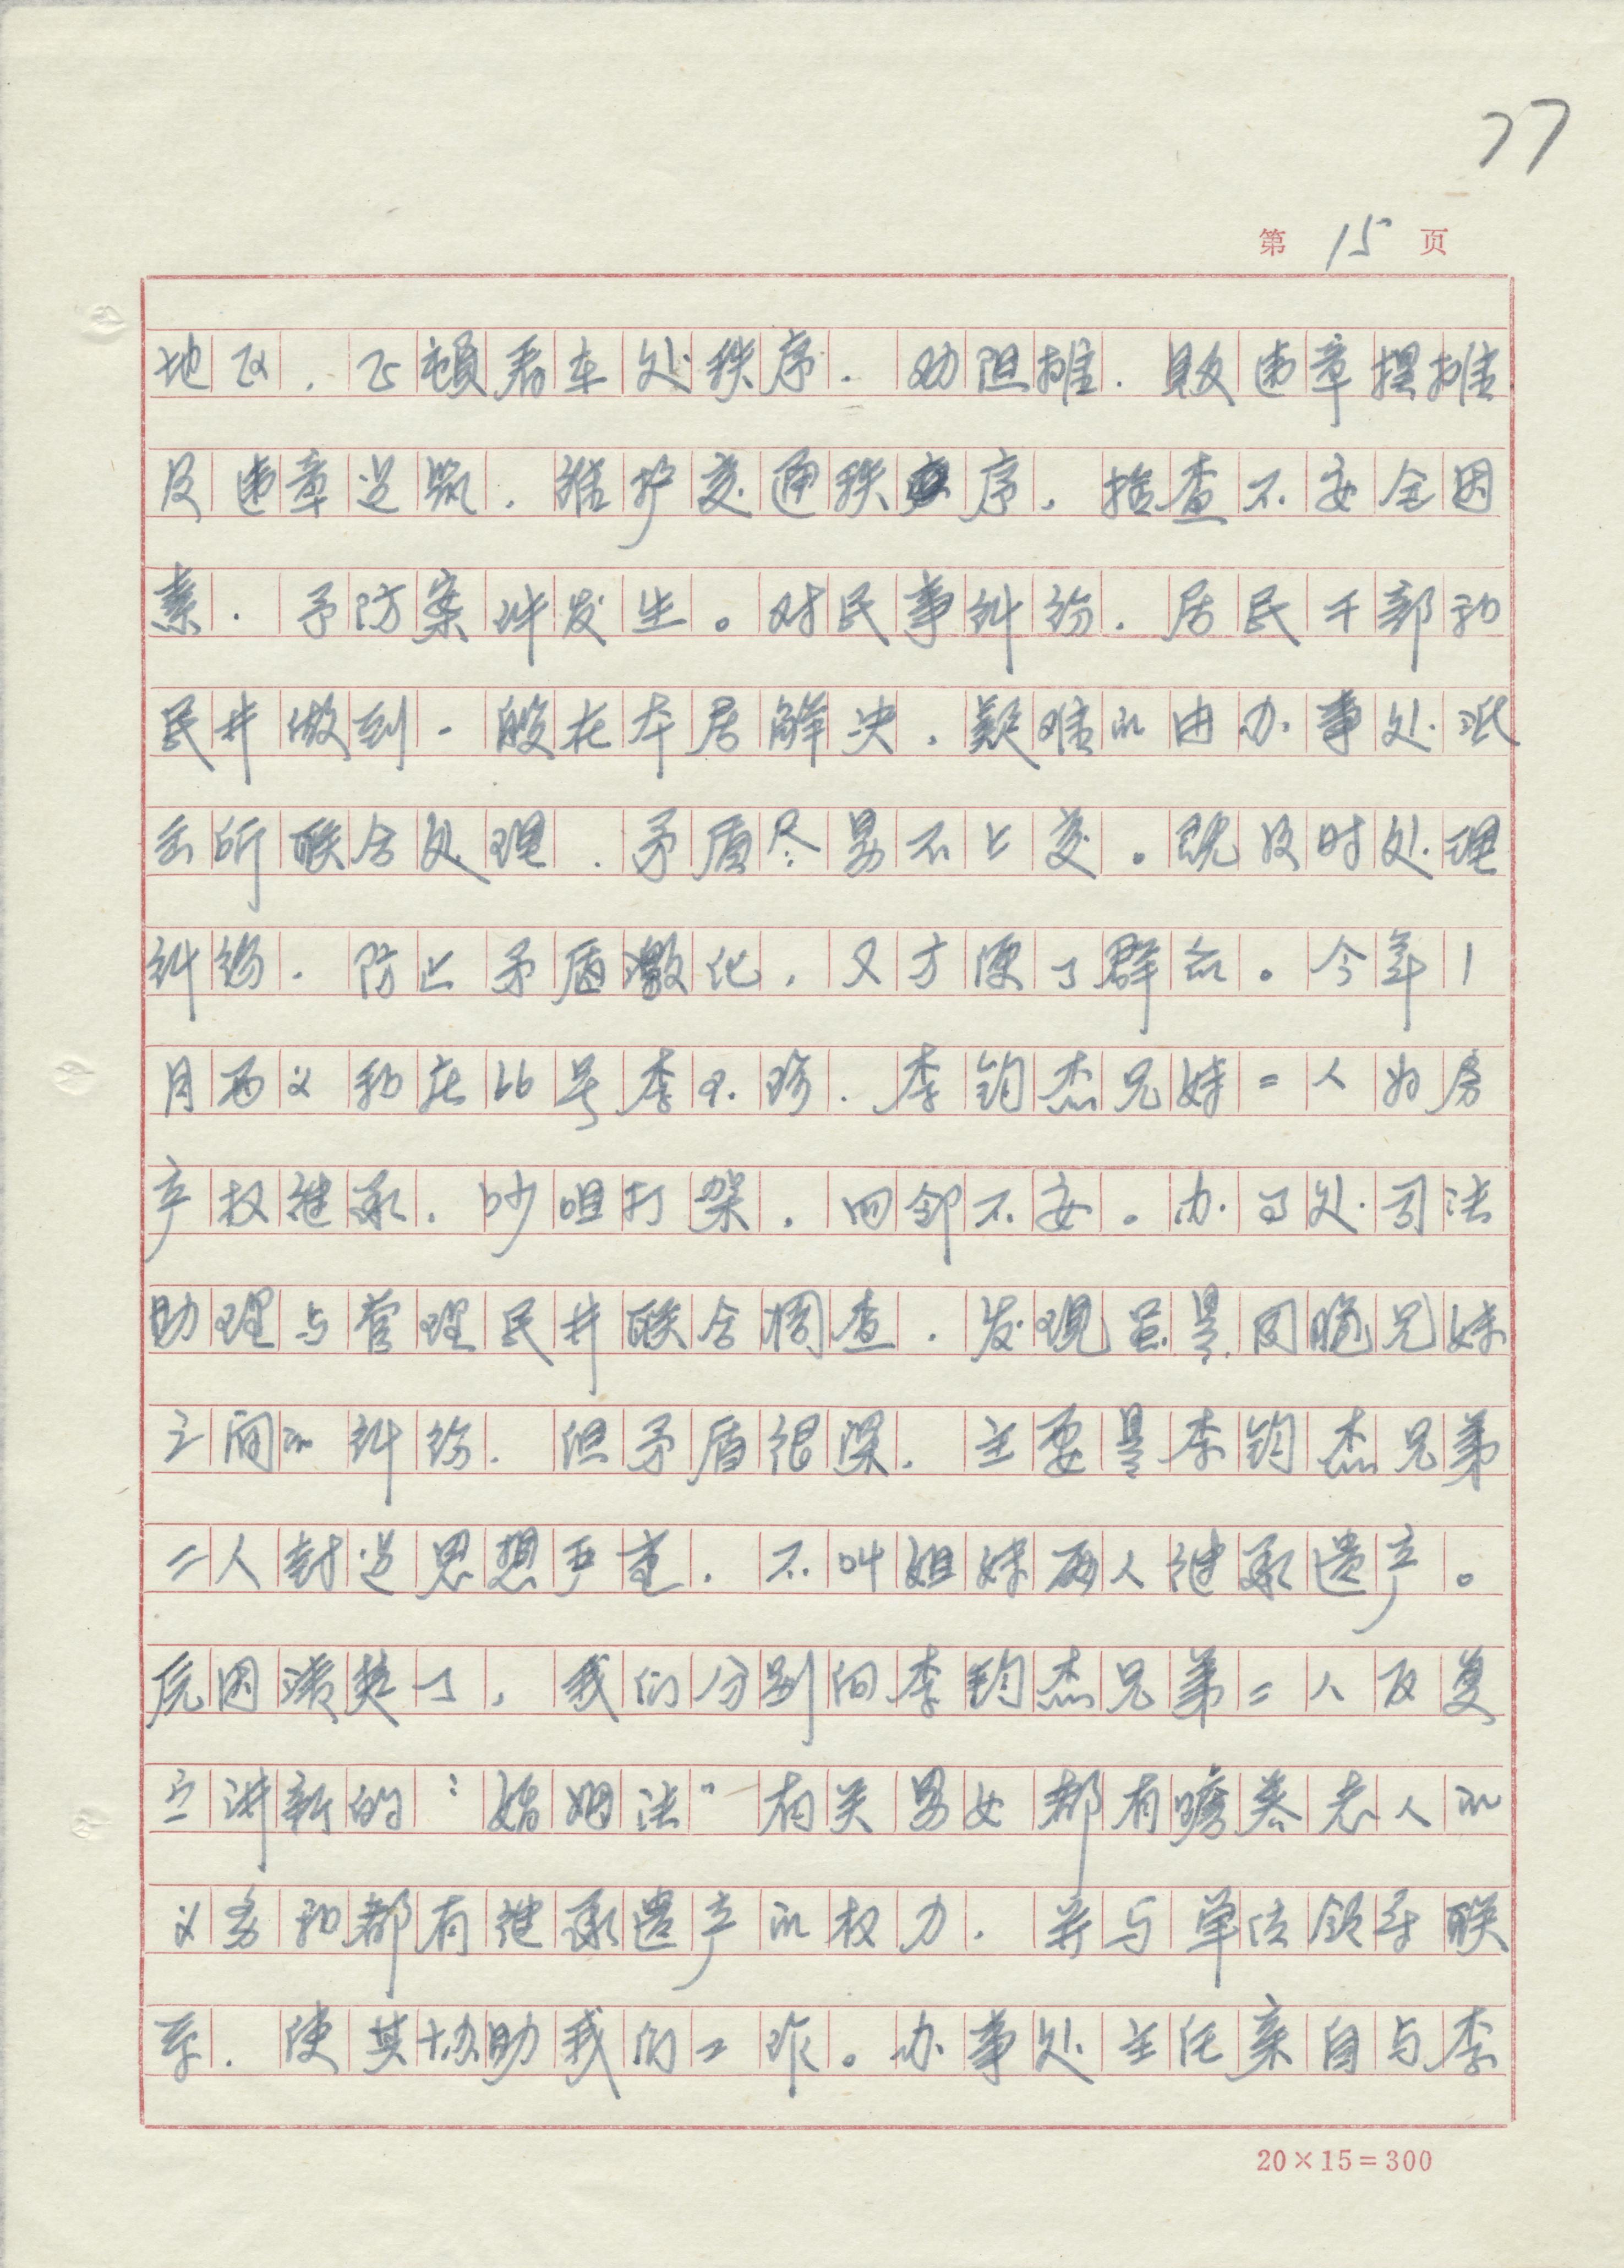 77
第 15 页
地区，正顿看车处秩序，劝阻摊、贩违章摆摊
及违章建筑，维护交通秩序，检查不安全因
素，予防案件发生。对民事纠纷，居民干部和
民井做到一般在本居解决，疑难的由办事处派
出所联合处理，矛盾尽量不上交。既及时处理
纠纷，防止矛盾激化，又方便了群众。今年1
月西义和庄66号李 珍、李钧杰兄妹二人为房
产权继承，吵咀打架，四邻不安。办了处司法
助理与管理民井联合调查，发现虽是同胞兄妹
之间的纠纷，但矛盾很深，主要是李钧杰兄弟
二人封建思想严重，不叫姐妹两人继承遗产。
原因清楚了，我们分别向李钧杰兄弟二人反复
宣讲新的“婚姻法”有关男女都有赡养老人的
义务和都有继承遗产的权力，并与单位领导联
系，使其协助我们工作。办事处主任亲自与李
20×15=300